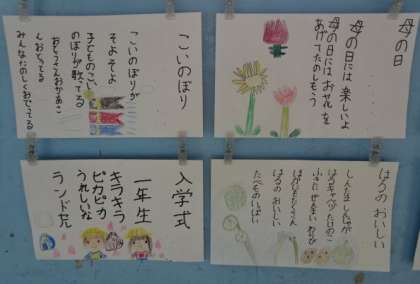 こいのぼり
こいのぼりが
そよそよ
子どものこい
のぼりが歌てる
おとうさんおかあさ
んおどってる
みんなたのしくおどってる
母の日
母の日には楽しいよ
母の日にはおせわを
あげてたのしもう
入学式
一年生
キラキラ
ピカピカ
うれしいな
ランドセル
はるのおいしい
しんたまねぎ
はるキャベツ たけのこ
ふき ぜんまい わらび
はるがたくさん
はるのおいしい
たべものいっぱい